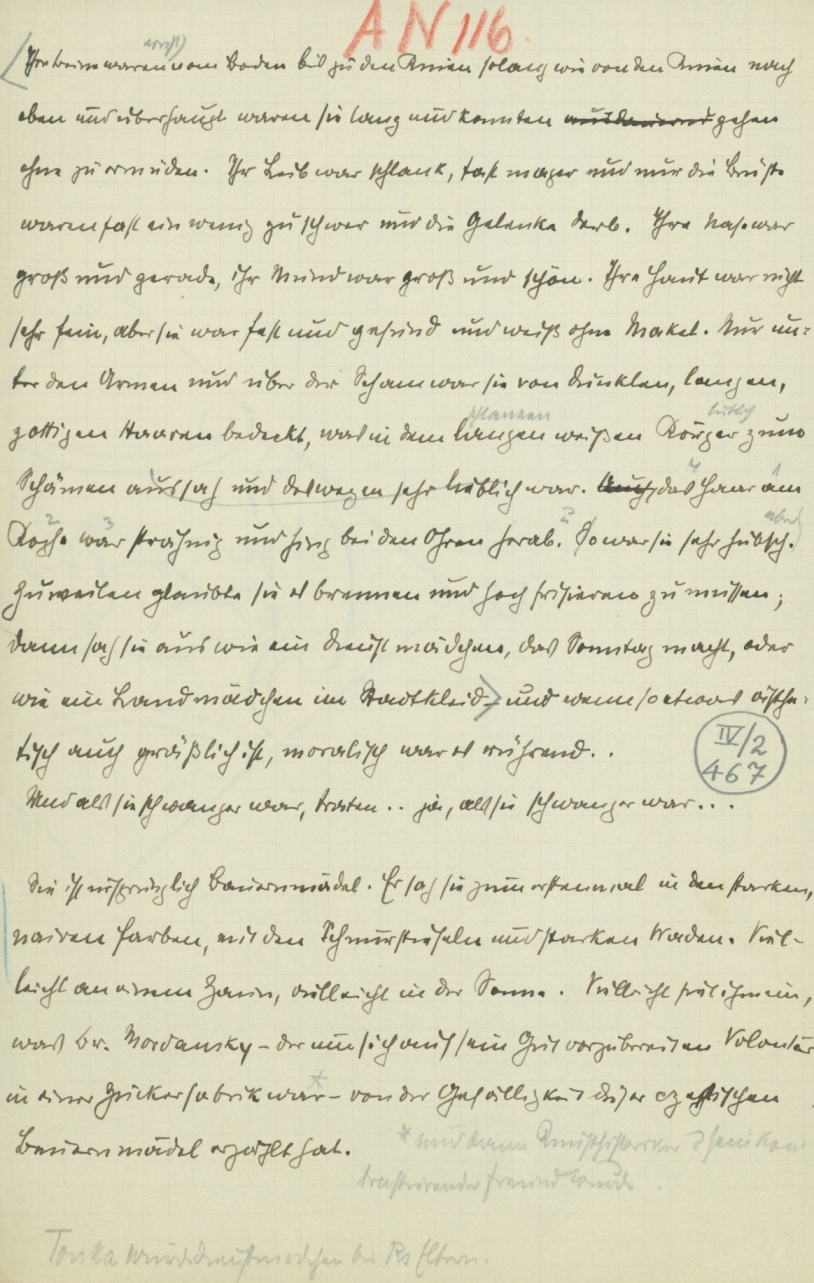 AN 116
Ihre Beine waren vom Boden bis zu den Knien solang wie von den Knien nach
oben und überhaupt waren sie lang und konnten gehen
ohne zu ermüden. Ihr Leib war schlank, fast mager und nur die Brüste
waren fast ein wenig zu schwer und die Gelenke derb. Ihre Nase war
groß und gerade, ihr Mund war groß und schön. Ihre Haut war nicht
sehr fein, aber sie war fest und gesund und weiß ohne Makel. Nur un=
ter den Armen und über der Scham war sie von dunklen, langen,
schlanken
zottigen Haaren bedeckt, was in dem langen weißen Körper zum
Schämen aussah und deswegen sehr lieblich war. Auch das Haar am
2 3
Kopfe war strähnig und hing bei den Ohren herab. So war sie sehr hübsch.
Zuweilen glaubte sie es brennen und hoch frisieren zu müssen;
dann sah sie aus wie ein Dienstmädchen, das Sonntag macht, oder
wie ein Landmädchen im Stadtkleid – und wenn so etwas ästhe=
tisch auch gräßlich ist, moralisch war es rührend..
IV/2
467
Und als sie schwanger war, traten .. ja, als sie schwanger war...
Sie ist ursprünglich Bauernmädel. Er sah sie zum erstenmal in den starken,
naiven Farben, mit den Schnürstiefeln und starken Waden. Viel-
leicht an einem Zaun, vielleicht in der Sonne. Vielleicht fiel ihm ein,
was Br. Mordansky – der um sich auf sein Gut vorzubereiten Volontär
in einer Zuckerfabrik war* – von der Gefälligkeit dieser czechischen
Bauernmädel erzählt hat.
* und dann Kunsthistoriker
Freund wurde.
Tonka wird Dienstmädchen bei Rs Eltern.